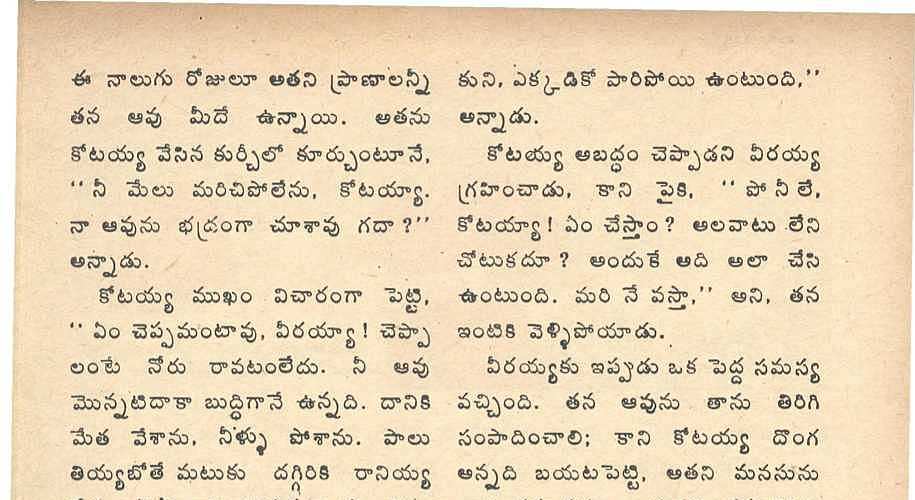 ఈ నాలుగు రోజులూ అతని ప్రాణాలన్నీ
తన ఆవు మీదే ఉన్నాయి. అతను
కోటయ్య వేసిన కుర్చీలో కూర్చుంటూనే,
‘‘నీ మేలు మరిచిపోలేను, కోటయ్యా.
నా ఆవును భద్రంగా చూశావు గదా?’’
అన్నాడు.
కోటయ్య ముఖం విచారంగా పెట్టి,
‘‘ఏం చెప్పమంటావు, వీరయ్యా! చెప్పా
లంటే నోరు రావటంలేదు. నీ ఆవు
మొన్నటిదాకా బుద్ధిగానే ఉన్నది. దానికి
మేత వేశాను, నీళ్ళు పోశాను. పాలు
తియ్యబోతే మటుకు దగ్గిరికి రానియ్య
కుని, ఎక్కడికో పారిపోయి ఉంటుంది,’’
అన్నాడు.
కోటయ్య అబద్ధం చెప్పాడని వీరయ్య
గ్రహించాడు, కాని పైకి, ‘‘పోనీలే,
కోటయ్యా! ఏం చేస్తాం? అలవాటు లేని
చోటుకదూ? అందుకే అది అలా చేసి
ఉంటుంది. మరి నే వస్తా,’’ అని, తన
ఇంటికి వెళ్ళిపోయాడు.
వీరయ్యకు ఇప్పుడు ఒక పెద్ద సమస్య
వచ్చింది. తన ఆవును తాను తిరిగి
సంపాదించాలి; కాని కోటయ్య దొంగ
అన్నది బయటపెట్టి, అతని మనసును